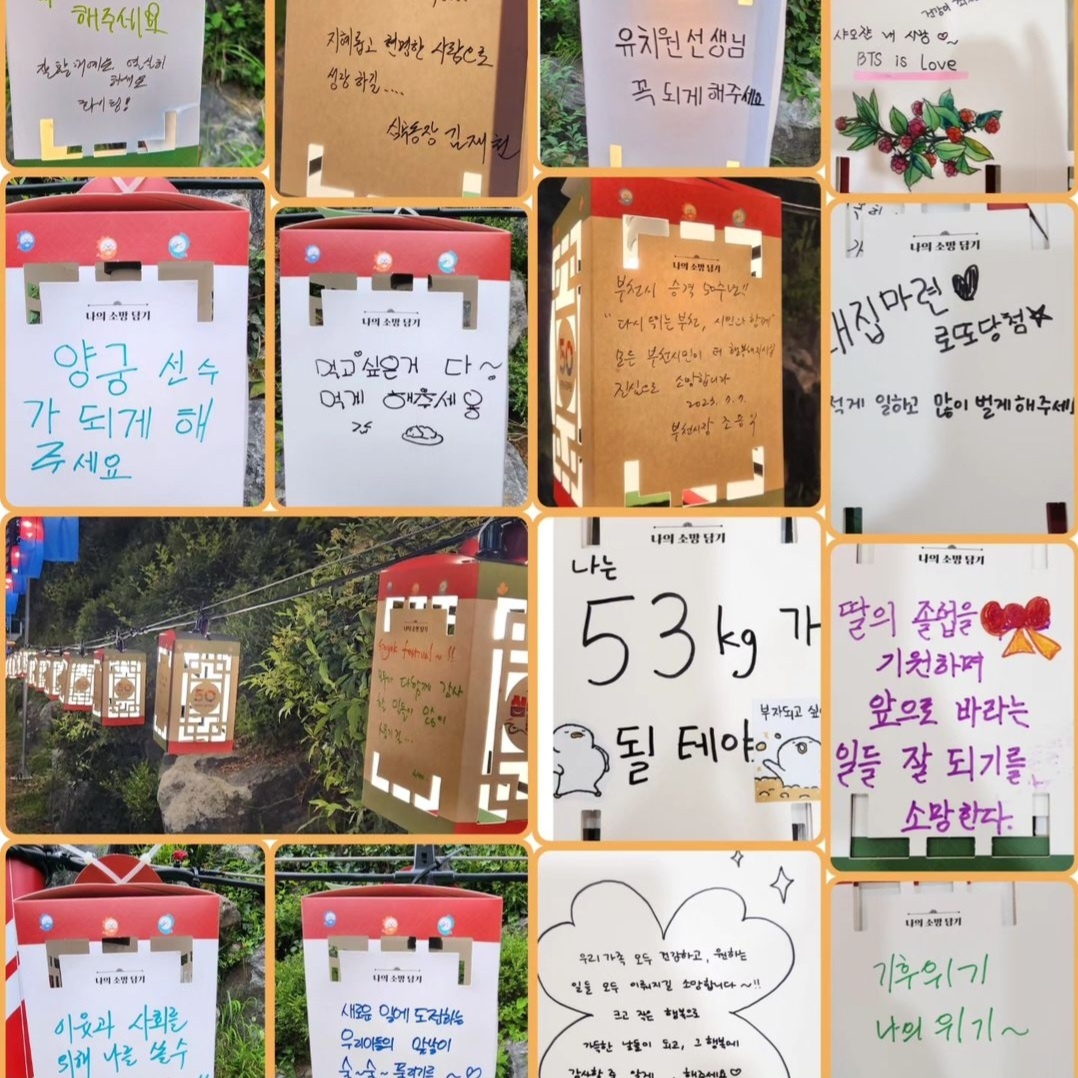 해주세요
파이팅!
지혜롭고 현명한 사람으로
성장 하길....
심곡동장 김재천
유치원선생님
꼭 되게 해주세요
사랑 ♡~
BTS is Love
나의 소망 담기
양궁 선수
가 되게 해
주세요
나의 소망 담기
먹고싶은거 다~
먹게 해주세용
나의 소망 담기
부천시 승격 50주년!!
"다시 뛰는 부천, 시민과 함께"
모든 부천시민이 더
진심으로 소망합니다
부천시장 조용익
나의 소망 담기
내집마련 ♥
로또당첨★
적게 일하고 많이 벌게해주세요
50
나의 소망 담기
festival~!!
다함께 감사
나의 소망 담기
나는
53kg 가
될 테야
부자되고 싶
나의 소망 담기
딸의 졸업을
기원하며
앞으로 바라는
일들 잘 되기를
소망한다.
나의 소망 담기
이웃과 사회를
위해 나를 쓸 수
나의 소망 담기
새로운 일에 도전하는
우리아들의 앞날이
술~술~ 풀리기를
우리 가족 모두 건강하고, 원하는
일들 모두 이뤄지길 소망합니다~!!
크고 작은 행복으로
가득한 날들이 되고, 그 행복에
감사할 줄 알게 해주세요♡
나의 소망 담기
기후위기
나의 위기~